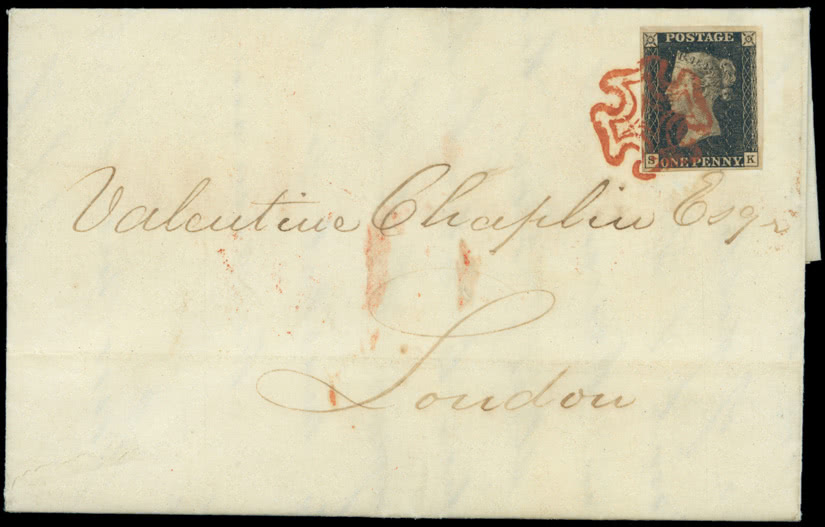 POSTAGE
S ONE PENNY K
Valentine Chaplin Esqr
London